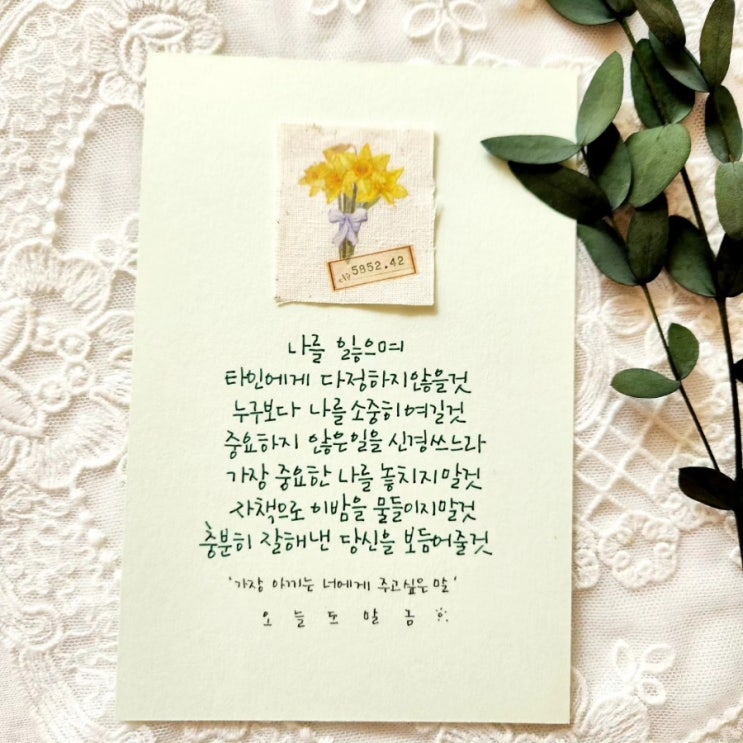 5852.42
나를 잃으며
타인에게 다정하지않을것
누구보다 나를소중히여길것
중요하지 않은일을 신경쓰느라
가장 중요한 나를 놓치지말것
자책으로 이밤을 물들이지말것
충분히 잘해낸 당신을 보듬어줄것
'가장 아끼는 너에게 주고싶은 말'
오늘도 말금